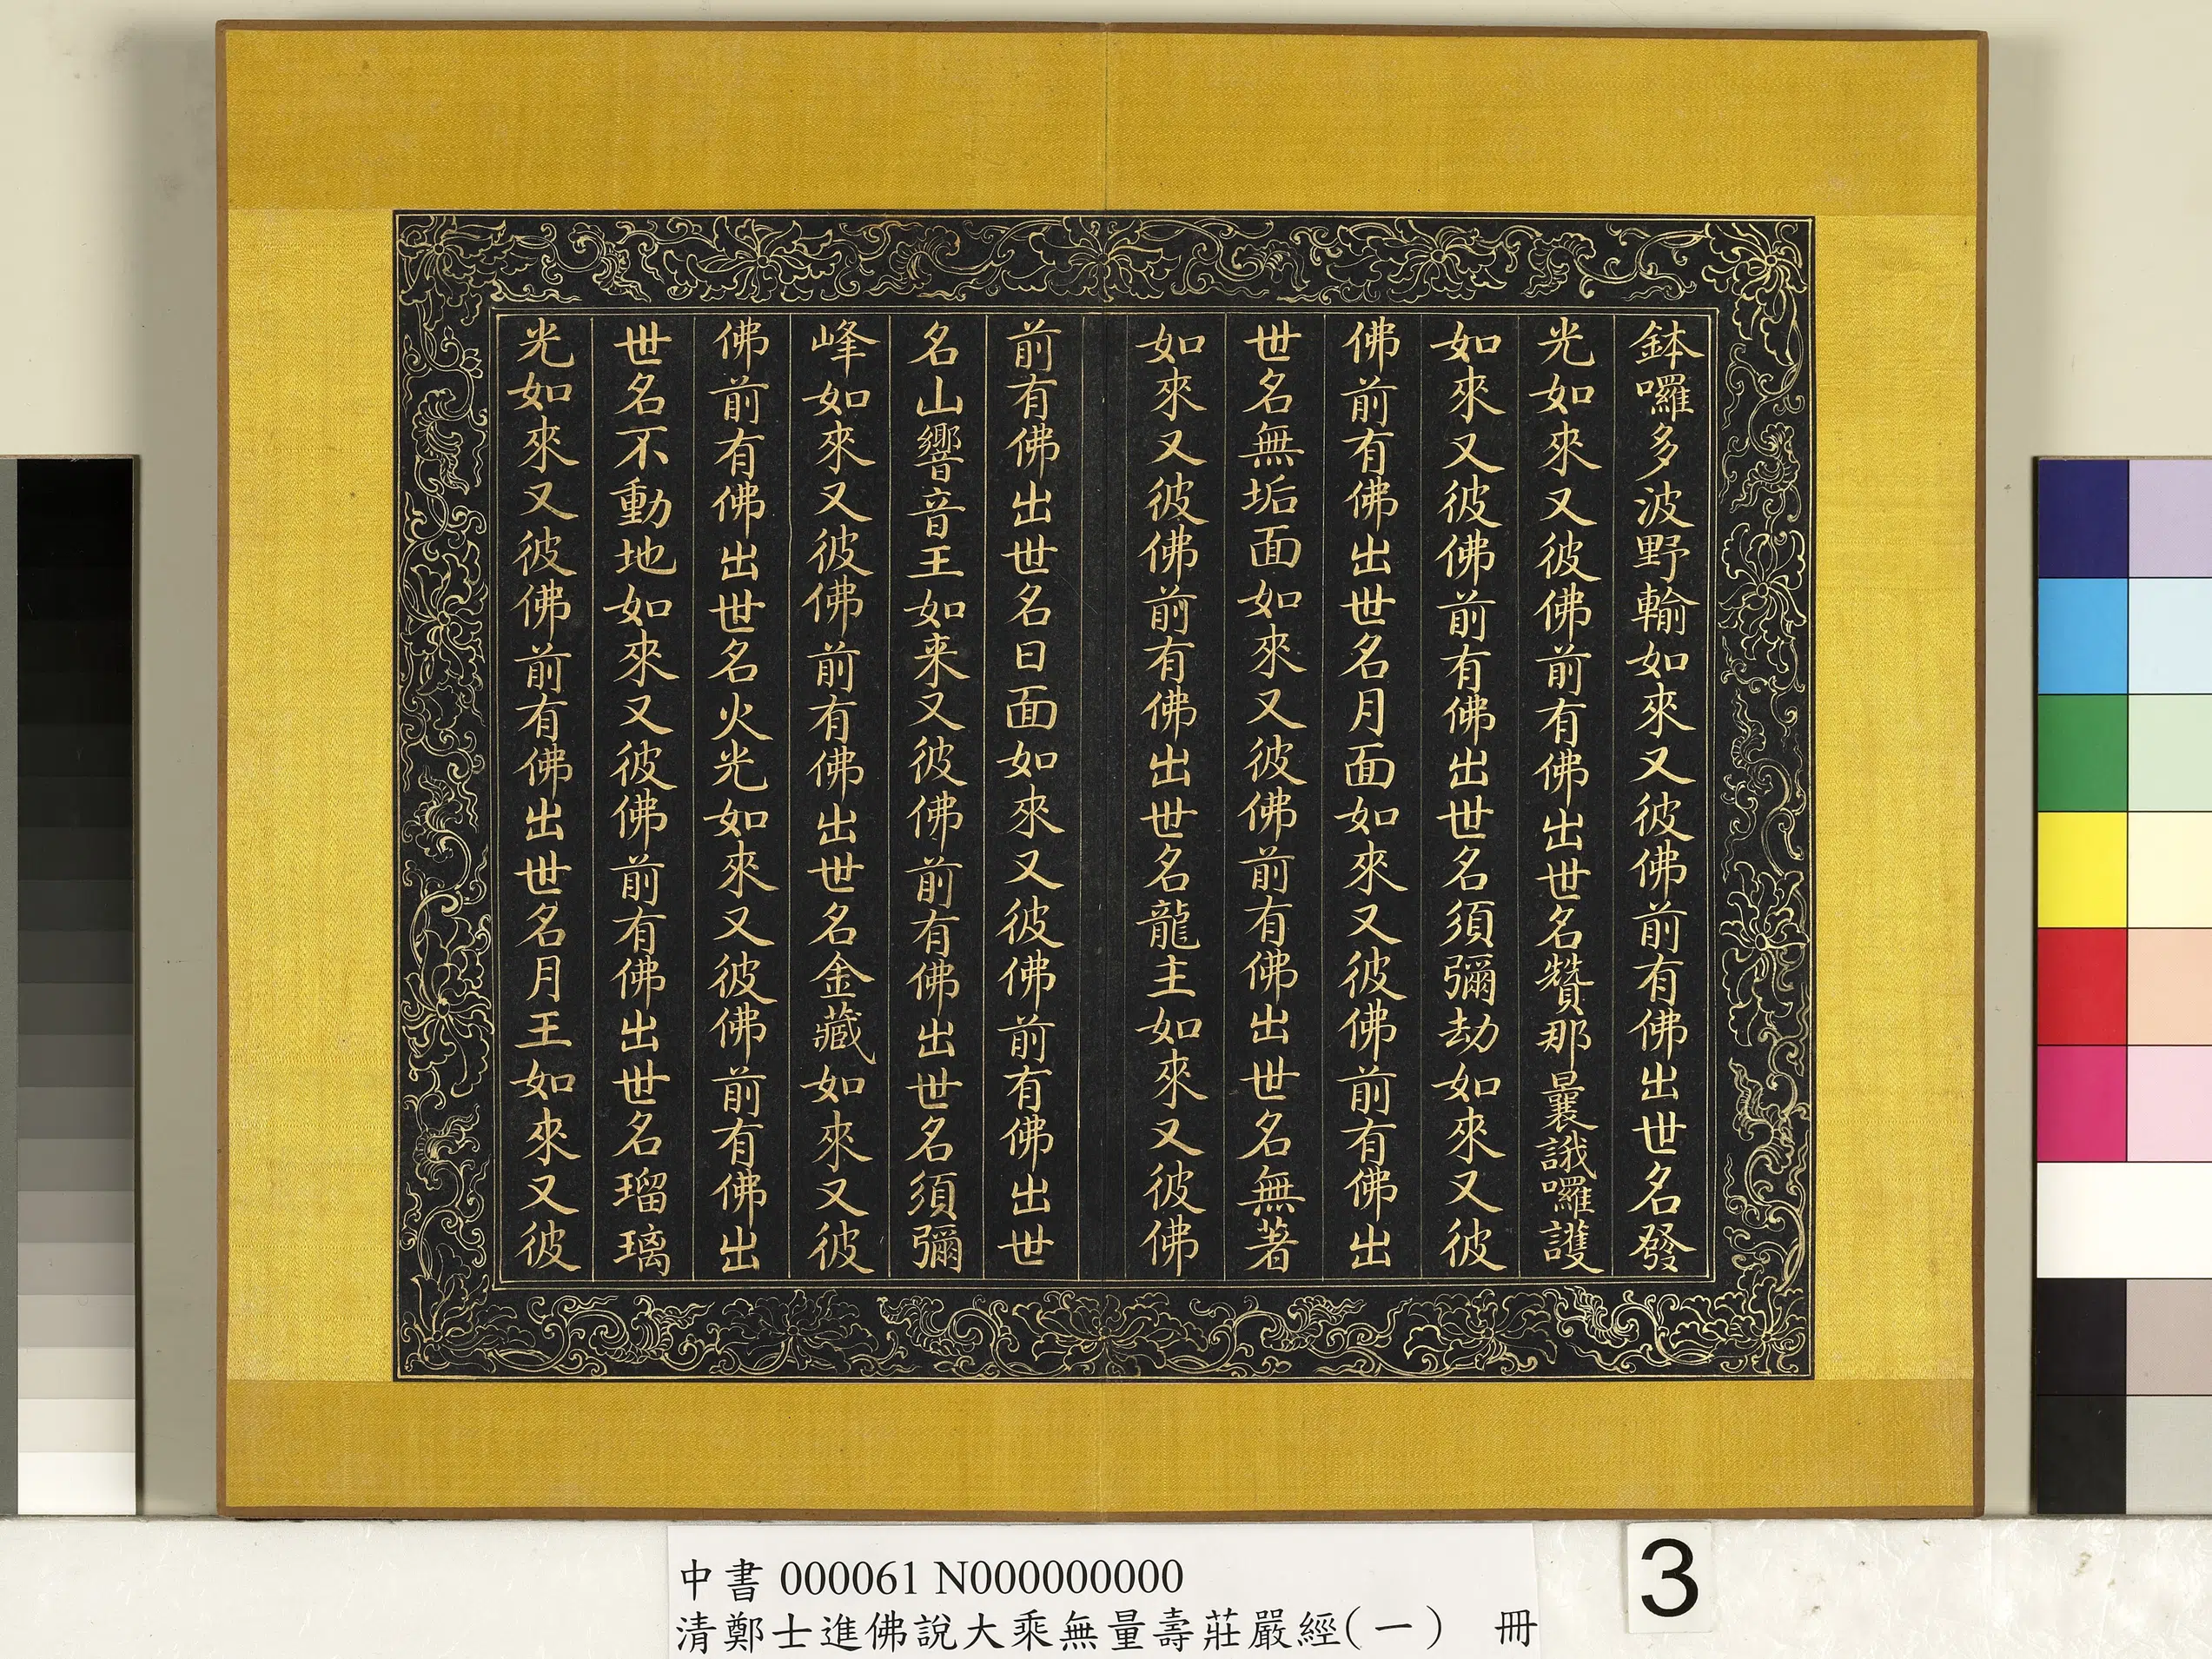 鉢囉多波野輸如來又彼佛前有佛出世名發
光如來又彼佛前有佛出世名贊那曩誐囉護
如來又彼佛前有佛出世名須彌劫如來又彼
佛前有佛出世名月面如來又彼佛前有佛出
世名無垢面如來又彼佛前有佛出世名無著
如來又彼佛前有佛出世名龍主如來又彼佛
前有佛出世名日面如來又彼佛前有佛出世
名山響音王如来又彼佛前有佛出世名須彌
峰如來又彼佛前有佛出世名金藏如來又彼
佛前有佛出世名火光如來又彼佛前有佛出
世名不動地如來又彼佛前有佛出世名瑠璃
光如來又彼佛前有佛出世名月王如來又彼
中書 000061 N000000000
清鄭士進佛說大乘無量壽莊嚴經(一) 冊
3